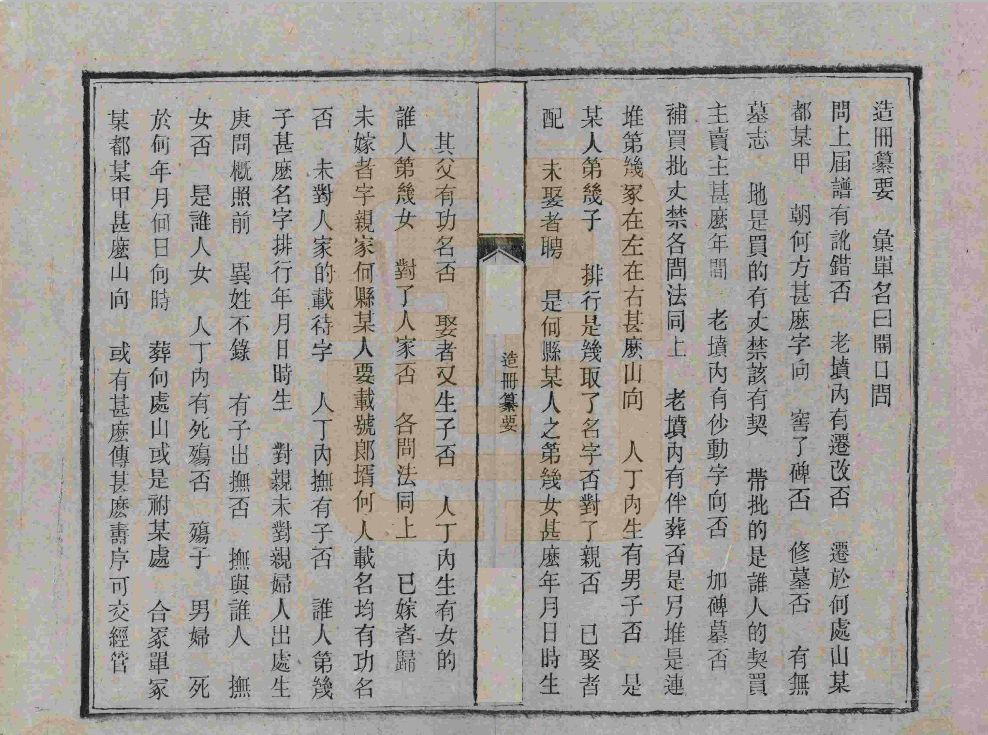 造冊纂要　彙單名曰開口問
問上届譜有訛錯否　老墳內有遷改否　遷於何處山某
都某甲　朝何方甚麽字向　窖了碑否　修墓否　有無
墓志　地是買的有丈禁該有契　帶批的是誰人的契買
主賣主甚麽年間　老墳內有徐動字向否　加碑墓否
補買批丈禁各問法同上　老墳內有伴葬否是另堆是連
堆第幾冢在左在右甚麽山向　人丁內生有男子否　是
某人第幾子　排行是幾取了名字否對了親否　已娶者
配　未娶者聘　是何縣某人之第幾女甚麽年月日時生
造冊纂要
其父有功名否　娶者又生子否　人丁內生有女的
誰人第幾女　對了人家否　各問法同上　已嫁者歸
未嫁者字親家何縣某人要載號郎壻何人載名均有功名
否　未對人家的載待字　人丁內撫有子否　誰人第幾
子甚麽名字排行年月日時生　對親未對親婦人出處生
庚問概照前　異姓不錄　有子出撫否　撫與誰人　撫
女否　是誰人女　人丁內有死殤否　殤于　男婦　死
於何年月何日何時　葬何處山或是祔某處　合冢單冢
某都某甲甚麽山向　或有甚麽傳甚麽壽序可交經管